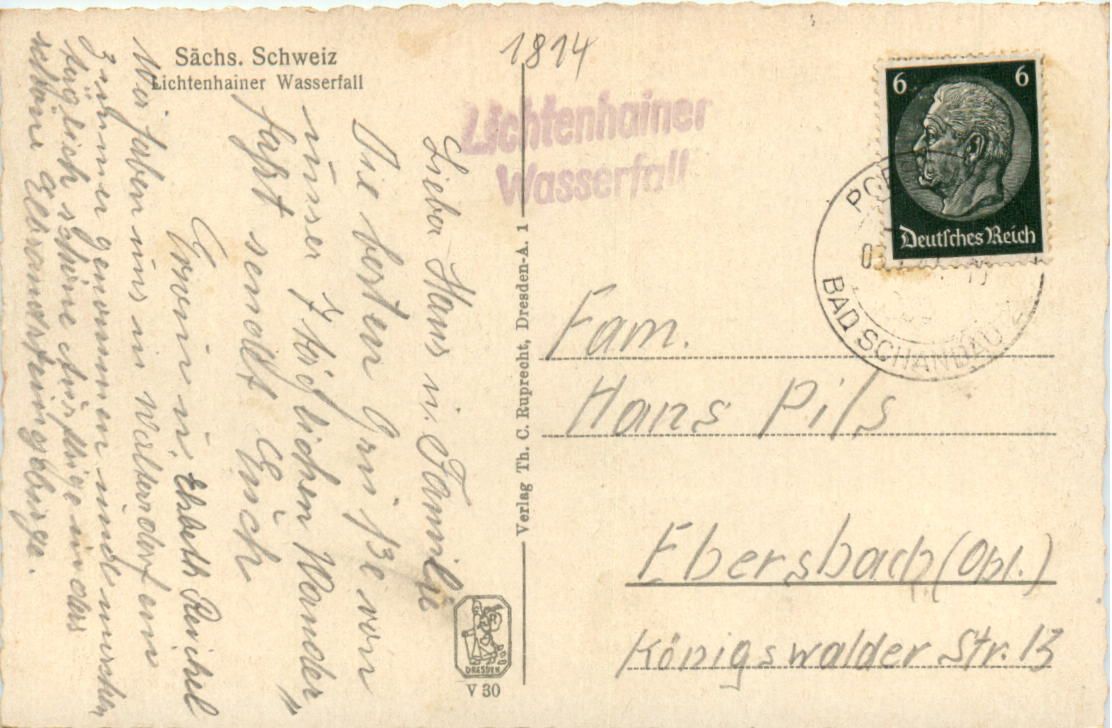 Sächs. Schweiz
Lichtenhainer Wasserfall
1814
Lichtenhainer
Wasserfall
Lieber Hans u. Familie
Die besten Grüße von
unser 7 täglichen Wander„
fahrt sendet Euch
Erwin u. Elsbeth Reichel
Wir haben uns in Waltersdorf ein
Zimmer genommen und machen
täglich schöne Ausflüge in das
schöne Elbsandsteingebirge.
Verlag Th. C. Ruprecht, Dresden-A. 1
DRESDEN
V 30
6 6
Deutsches Reich
BAD SCHANDAU 2
Fam.
Hans Pils
Ebersbach (Obl.)
Königswalder Str. 13